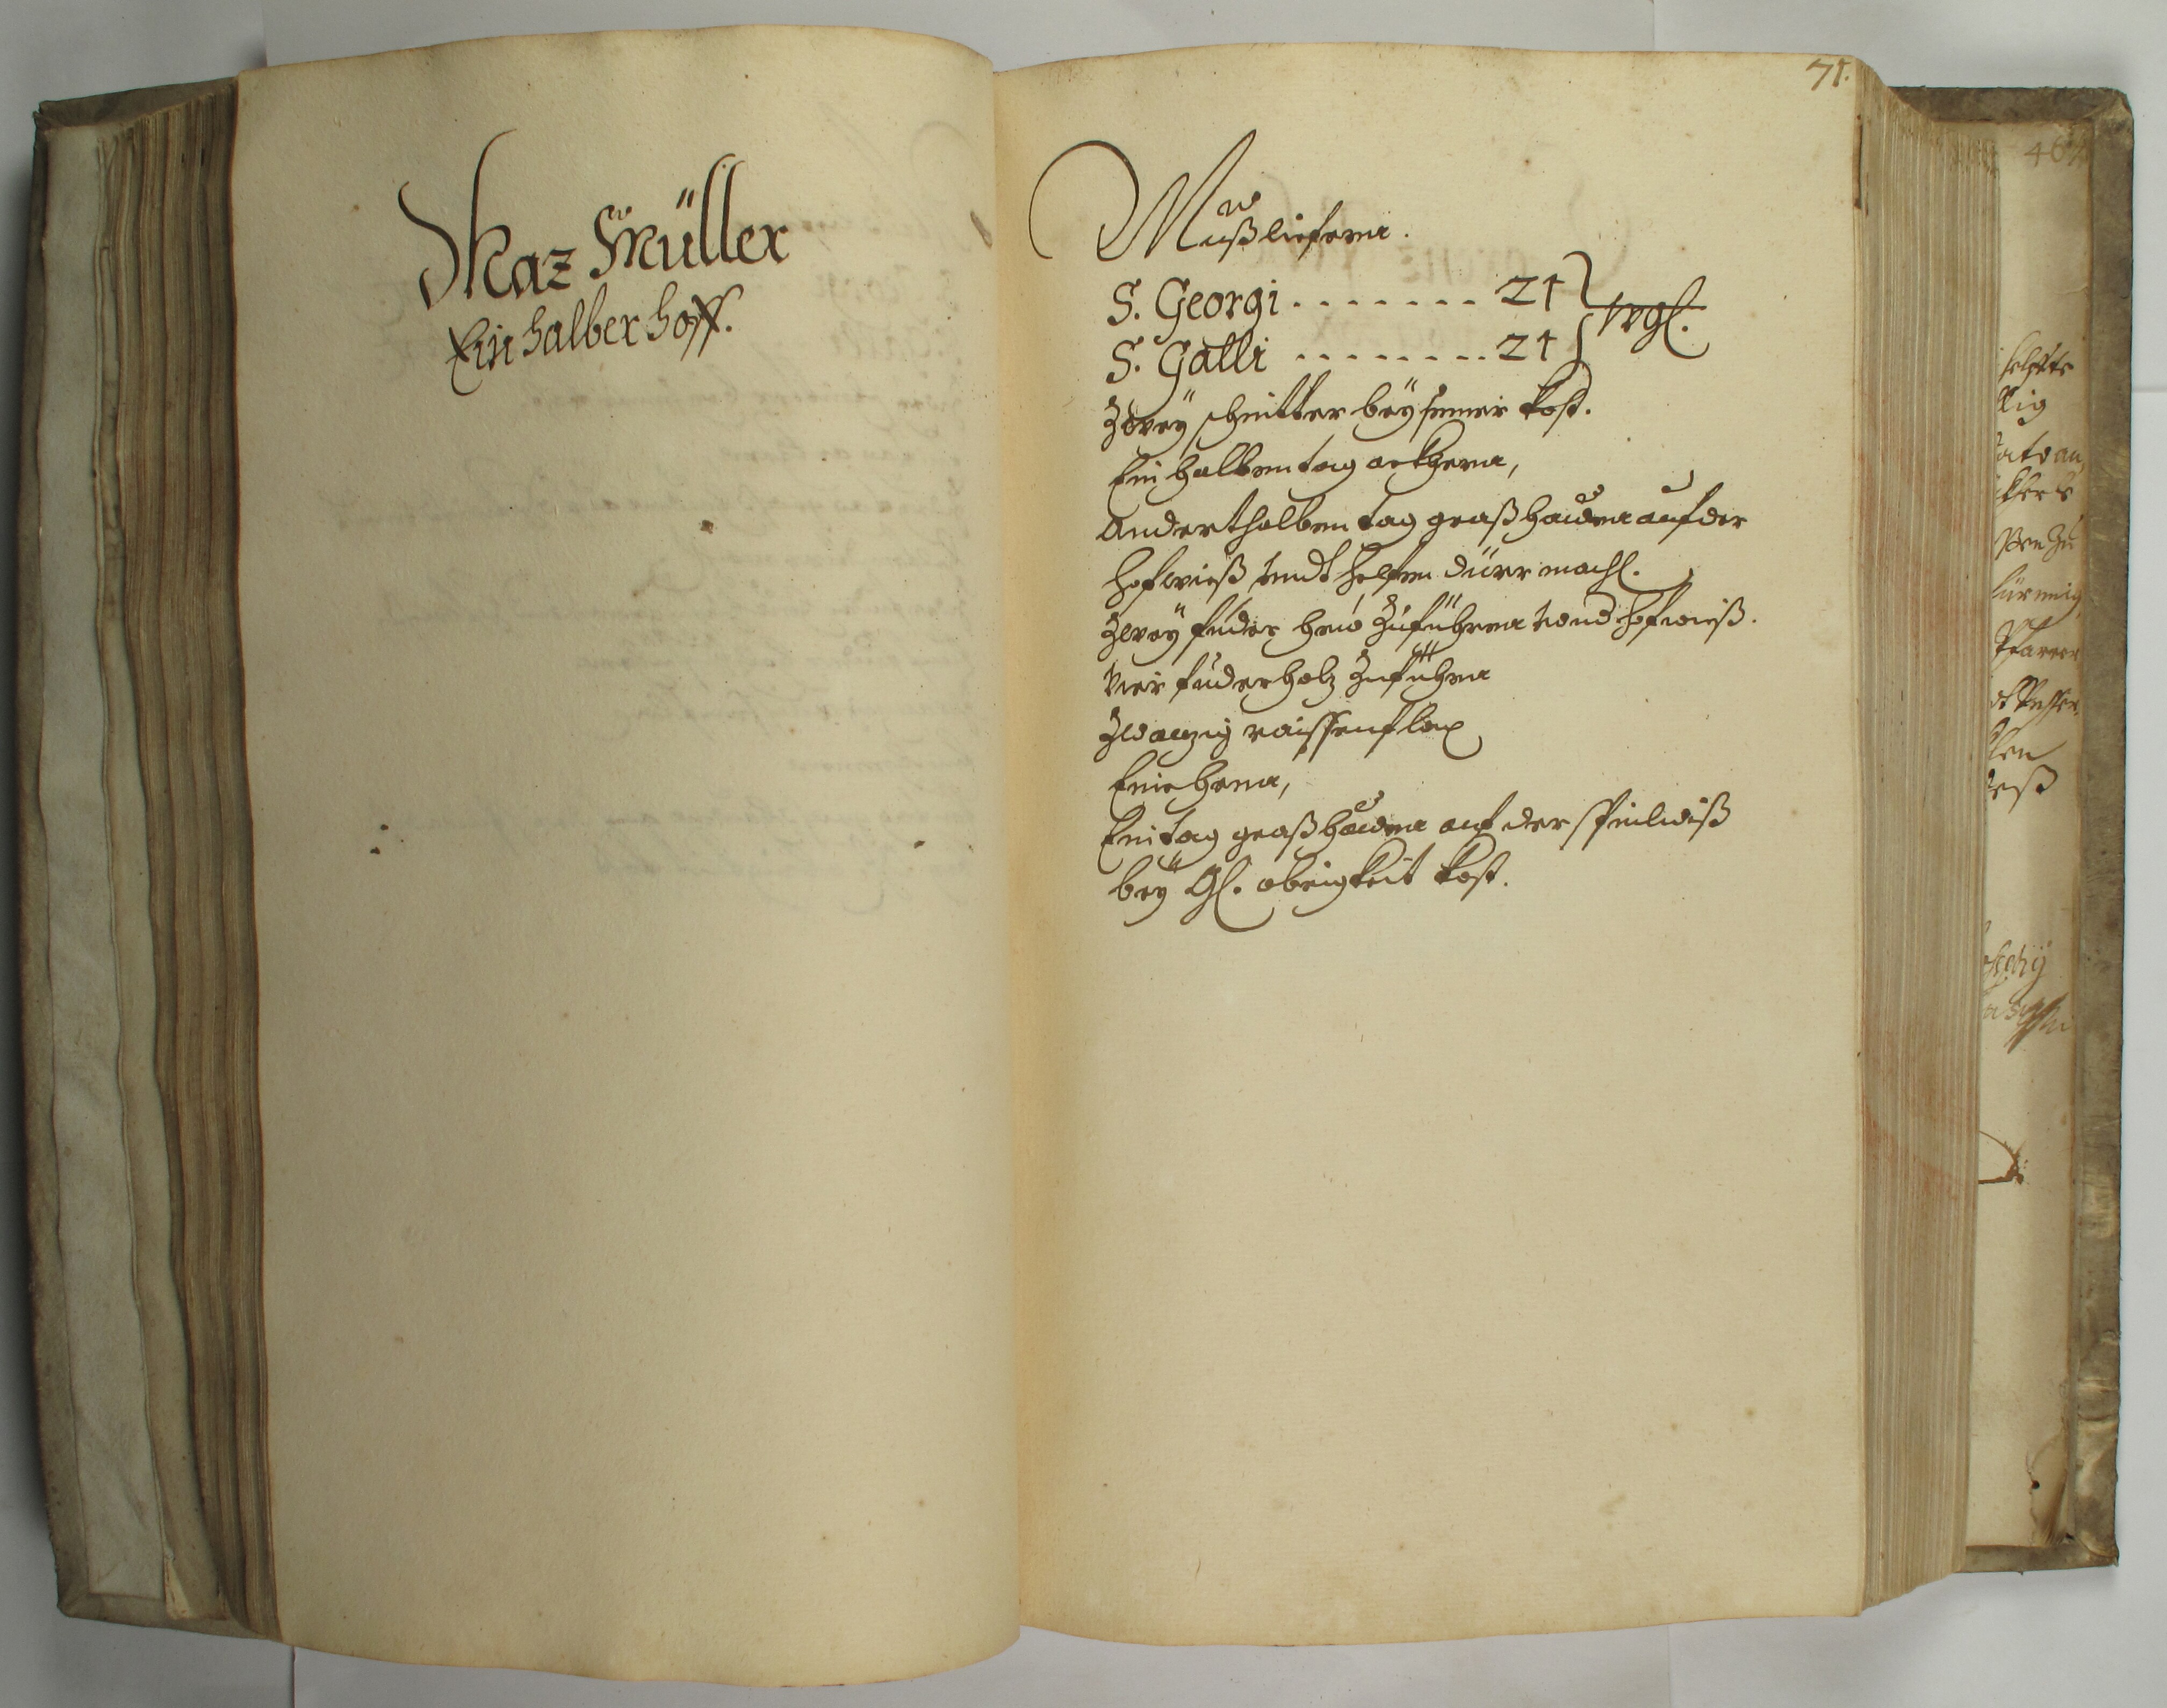 Maz Müller
Ein halber hoff.
71.
Muß liefern.
S. Georgi . . . . . . . . 21
S. Galli . . . . . . . . 21
Zweÿ schnitter beÿ seiner kost.
Ein halben tag ackhern,
Anderthalben tag graß hauen auf der
hofwieß vndt helfen dürr mach.
Zweÿ fuder heu Zuführen von d hofwieß.
Vier fuder holz Zuführen
Zwanzig raissen flax
Eine henn,
Ein tag graß hauen auf der
beÿ Gl. obrigkeit kost.